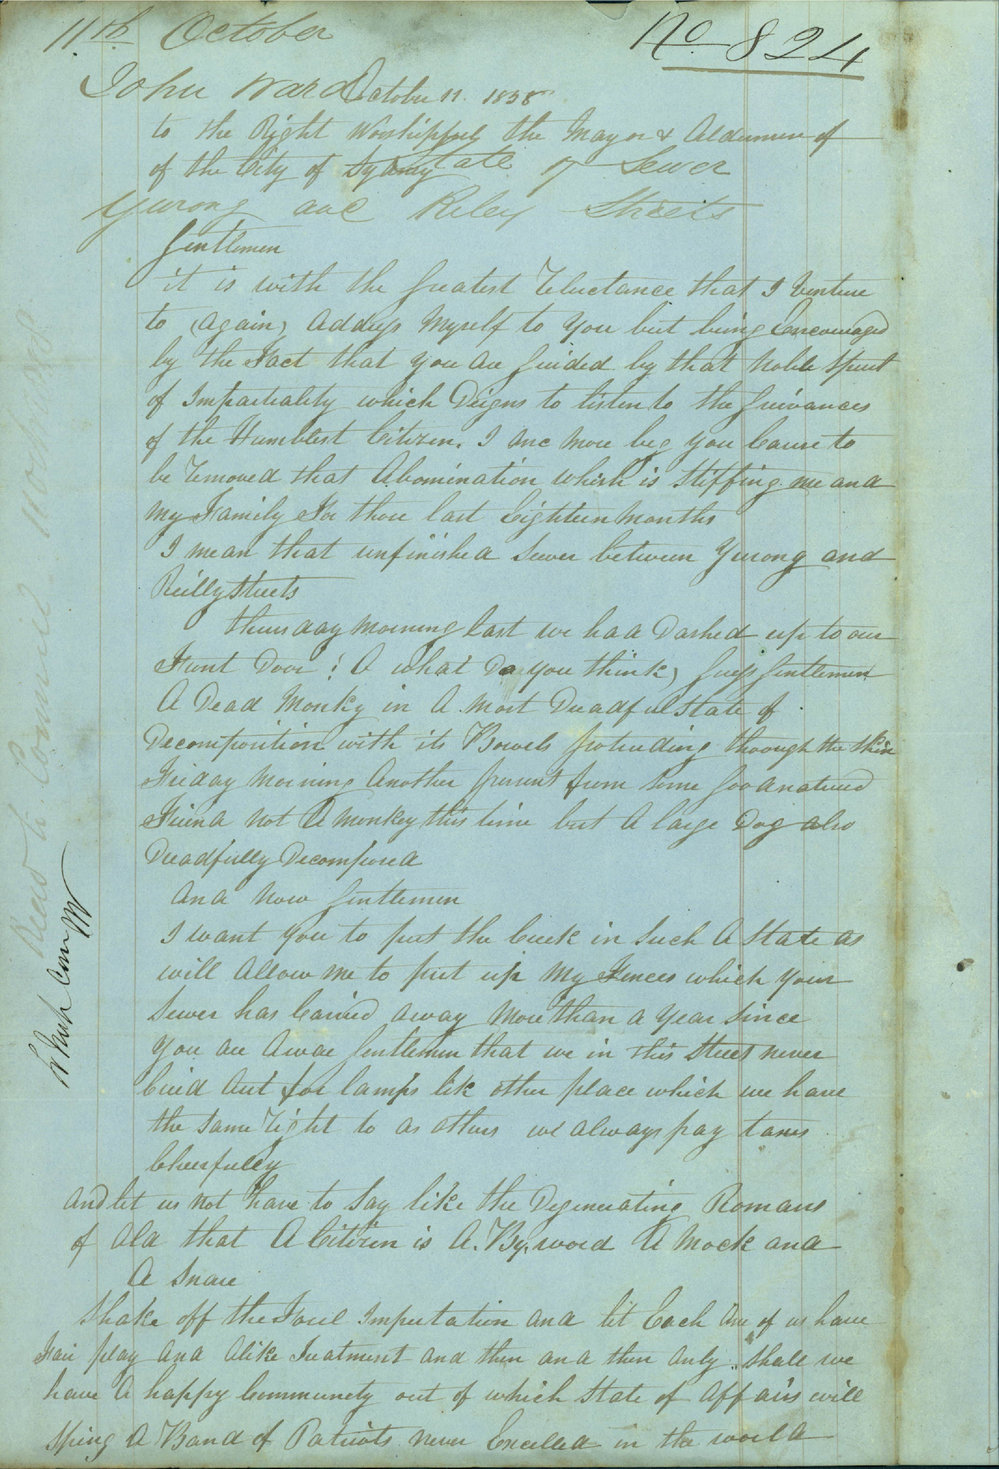 11th October
No 824
John Ward October 11. 1858
to the Right Worshipful the Mayor & Aldermen of
of the City of Sydney
state of Sewer
Yurong and Riley Streets
Gentlemen
it is with the Greatest Reluctance that I Venture
to (Again) Address Myself to You but being Encouraged
by the Fact that you are Guided by that Noble Spirit
of Impartiality which Deigns to listen to the Grievances
of the Humblest Citizen. I one More beg you Cause to
be Removed that Abomination which is Stiffing me and
My Family For those last Eighteen Months
I mean that unfinished Sewer between Yurong and
Reilly Streets
thursday Morning last we had Dashed up to our
Front Door ! A what Do you think, Guess Gentlemen
A Dead Monky in A Most Dreadful State of
Decomposition with its Bowels protruding through the Skin
Friday Morning Another present from some Good natured
Friend Not A monkey this time but A large Dog also
Dreadfully Decomposed
And Now Gentlemen
I want You to put the Creek in Such A State as
will Allow me to put up My Fences which your
Sewer has Carried away More than a Year Since
You are Aware Gentlemen that we in this Street never
Cried Out for lamps like other place which we have
the Same Right to as others we always pay taxes
Cheerfully
And let us not have to Say like the Degenerating Romans
of Old that A Citizen is A. By. word A Mock and
A Snare
Shake off the Foul Imputation and let Each One of us have
Fair play And Alike Treatment and then and then Only Shall we
have A happy Community out of which State of Affairs will
Spring A Band of Patriots never Excelled in the world
Read to Committee